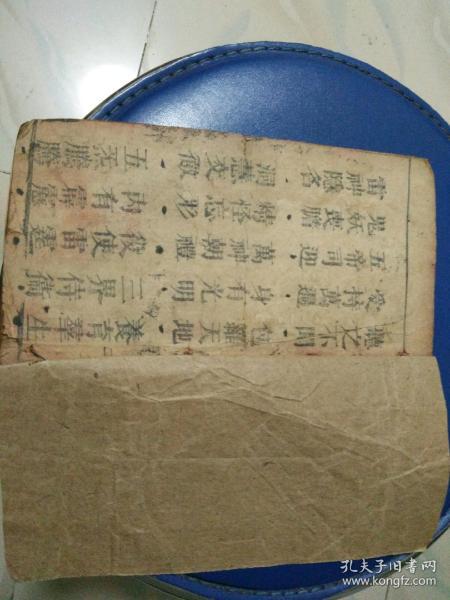 聽之不聞包羅天地養育羣生
受持萬遍身有光明三界侍衛
五帝司迎萬神朝禮役使雷霆
鬼妖喪膽精怪忘形內有霹靂
雷神隱名洞慧交徹五炁騰騰
孔夫子旧书网
www.kongfz.com